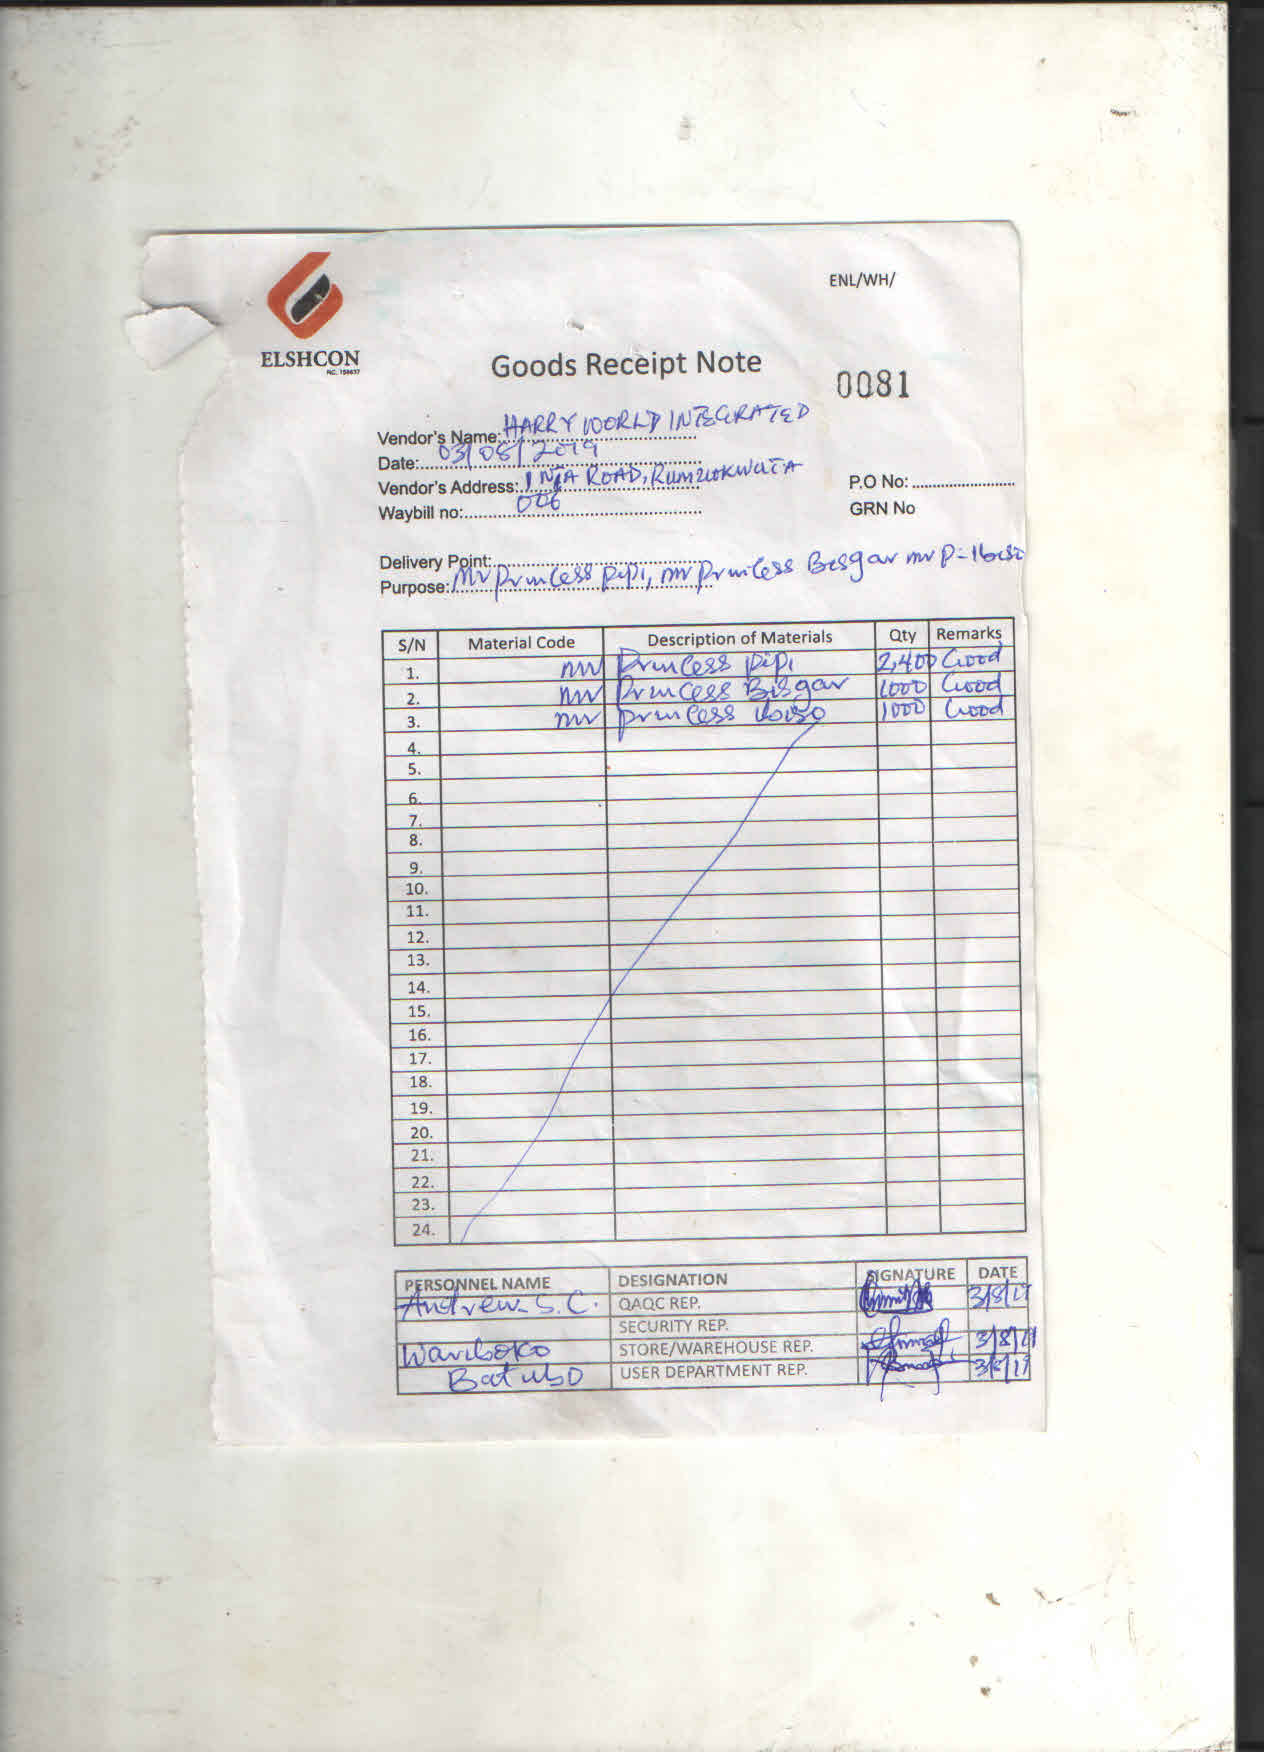 ENL/WH/
ELSHCON
RC. 158637
Goods Receipt Note
0081
Vendor's Name: HARRY WORLD INTEGRATED
Date: 03/08/2019
Vendor's Address: 1 NTA ROAD, RUMUOKWUTA
P.O No:
Waybill no: 006
GRN No
Delivery Point:
Purpose: MV Princess Pipi, MV Princess Bisgar MV P-Ibiso
S/N Material Code Description of Materials Qty Remarks
1. MV Princess Pipi 2,400 Good
2. MV Princess Bisgar 1000 Good
3. MV Princess Ibiso 1000 Good
4.
5.
6.
7.
8.
9.
10.
11.
12.
13.
14.
15.
16.
17.
18.
19.
20.
21.
22.
23.
24.
PERSONNEL NAME DESIGNATION SIGNATURE DATE
Andrew S.C. QAQC REP. 3/8/19
SECURITY REP.
Wariboko STORE/WAREHOUSE REP. 3/8/19
Batubo USER DEPARTMENT REP. 3/8/19